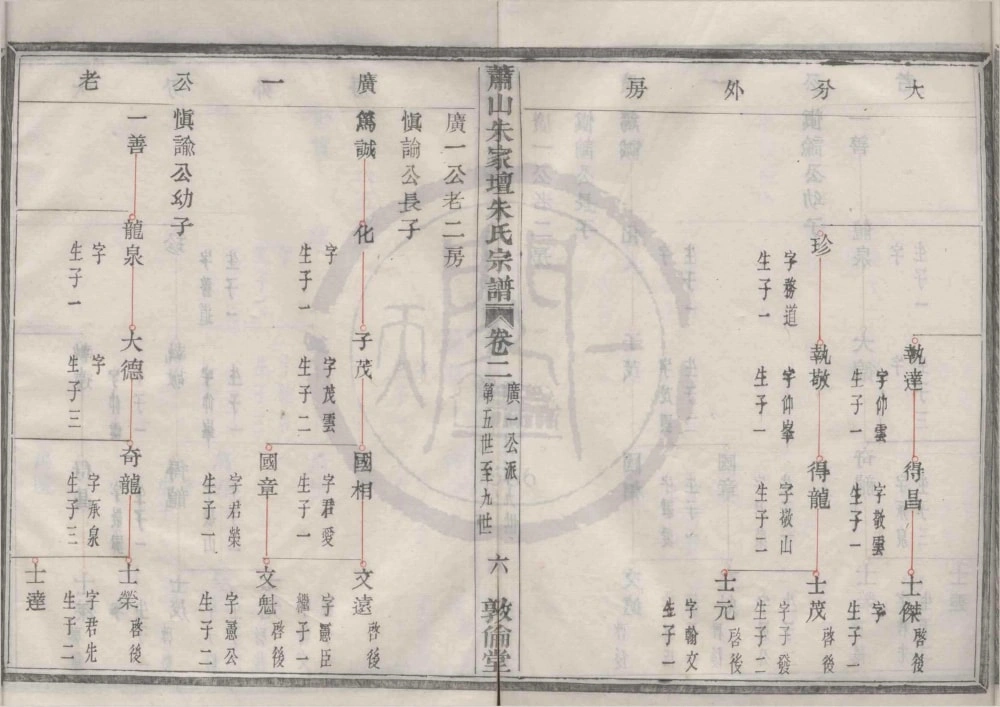 大分外房
執達
字仰雲
生子一
得昌
字敬雲
生子一
士傑
啓後
字
生子一
珍
字務道
生子一
執敬
字仰峯
生子一
得龍
字敬山
生子二
士茂
啓後
字子發
生子二
士元
啓後
字翰文
生子一
蕭山朱家壇朱氏宗譜
卷二
廣一公派
第五世至九世
六
敦倫堂
廣一公老
廣一公老二房
愼諭公長子
爲誠
化
字
生子一
子茂
字茂雲
生子二
國相
字君愛
生子一
文遠
啓後
字憲臣
繼子一
國章
字君榮
生子一
文魁
啓後
字憲公
生子二
愼諭公幼子
一善
龍泉
字
生子一
大德
字
生子三
奇龍
字承泉
生子三
士榮
啓後
字君先
生子二
士達